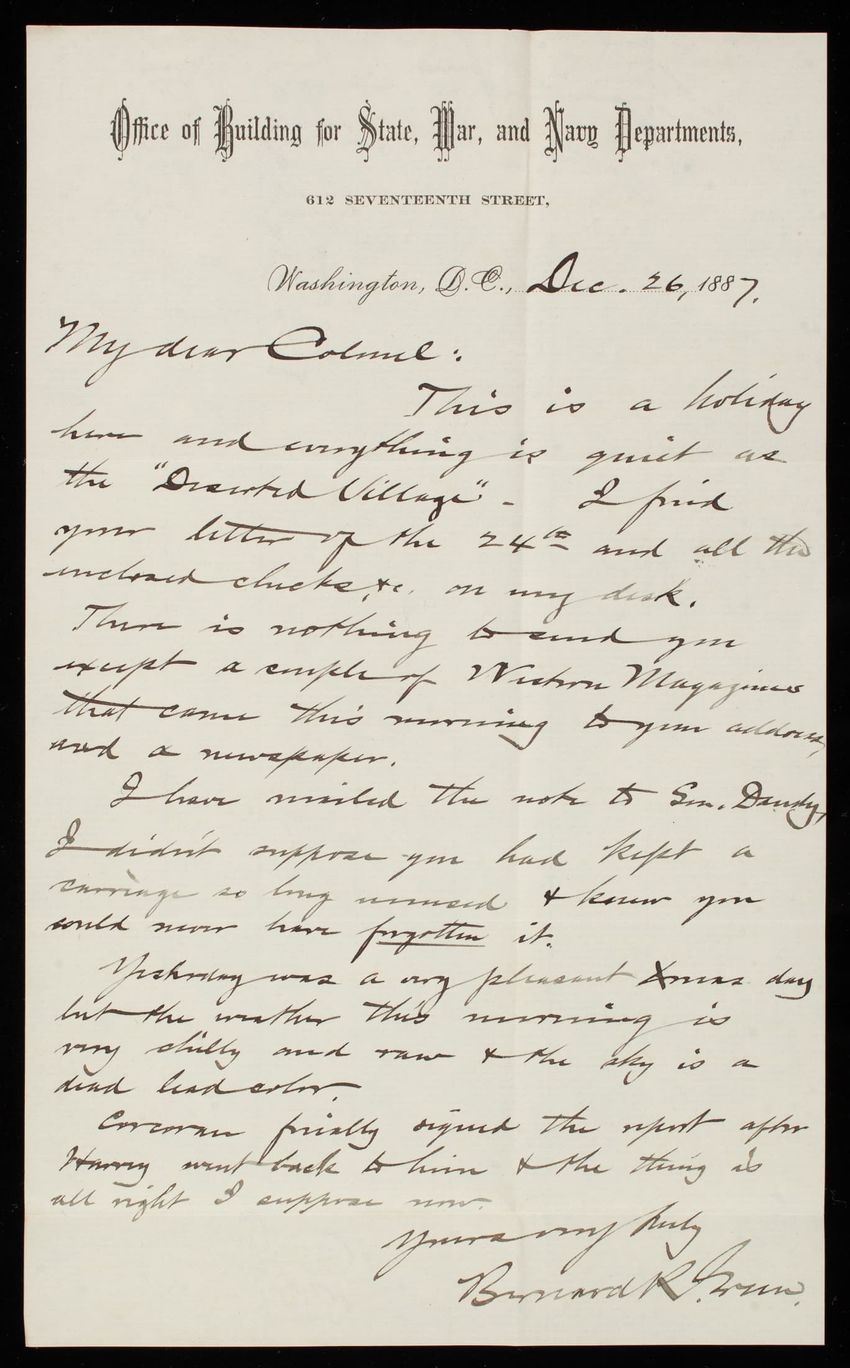 Office of Building for State, War, and Navy Departments,
612 SEVENTEENTH STREET,
Washington, D.C., Dec. 26, 1887.
My dear Colonel:
This is a holiday
here and everything is quiet as
the "Deserted Village" - I find
your letter of the 24th and all the
enclosed checks, &c. on my desk.
There is nothing to send you
except a couple of Western Magazines
that came this morning to your address,
and a newspaper.
I have mailed the note to Gen. Dandy,
I didn't suppose you had kept a
carriage so long unused & knew you
could never have forgotten it.
Yesterday was a very pleasant Xmas day
but the weather this morning is
very chilly and raw & the sky is a
dead lead color.
Corcoran finally signed the report after
Harvey went back to him & the thing is
all right I suppose now.
Yours very truly
Bernard R. Green.